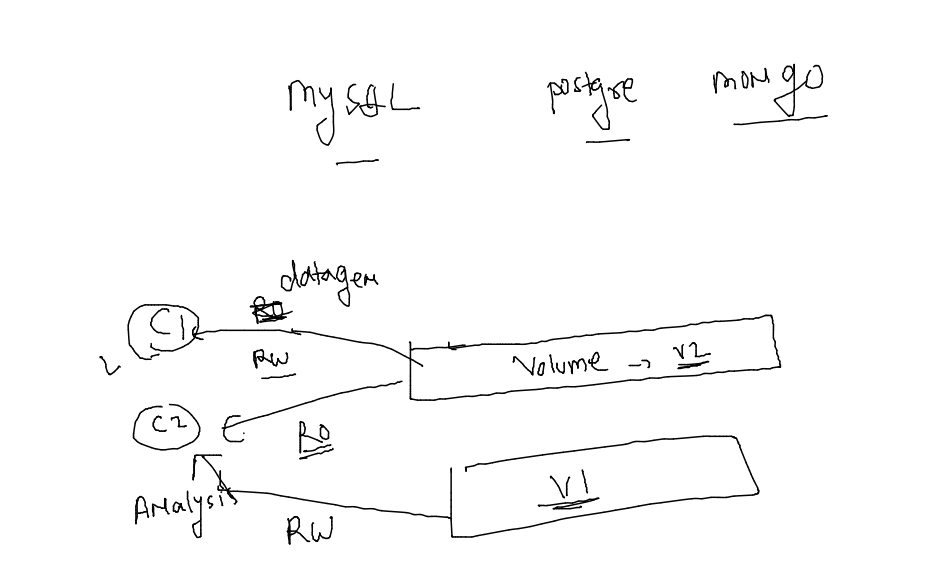 MySQL postgre mongo
datagen
C1
RW
Volume -> V2
C2
RO
V1
Analysis
RW